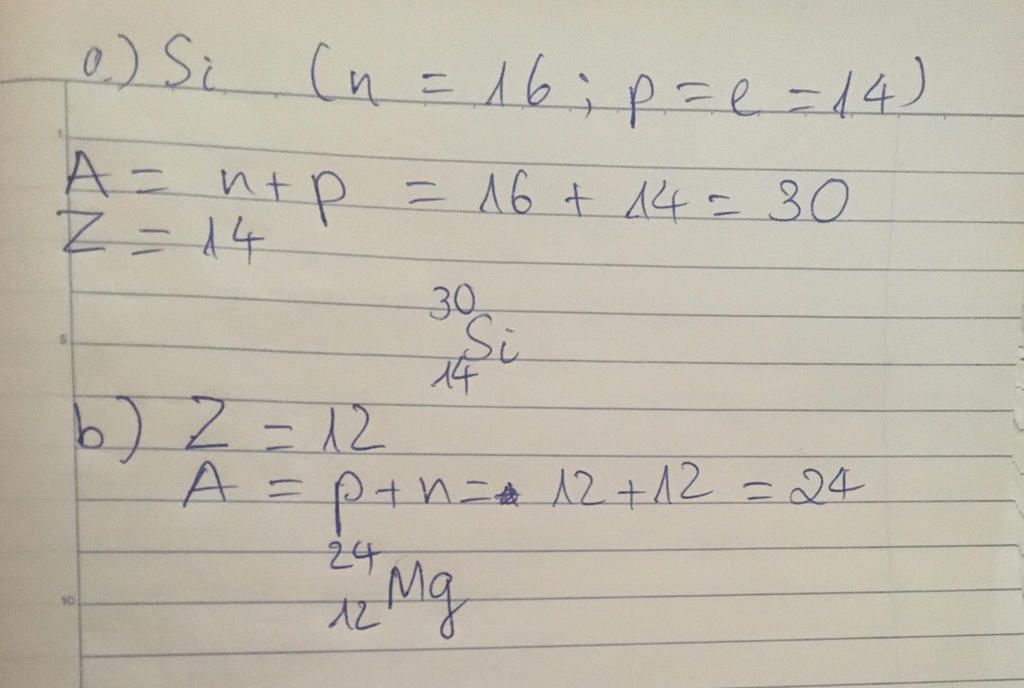 a.) Si (n = 16; p = e = 14)
A = n + p = 16 + 14 = 30
Z = 14
30
Si
14
b) Z = 12
A = p + n = 12 + 12 = 24
24
Mg
12